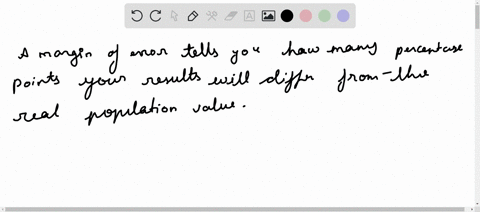 A margin of error tells you how many percentage
points your results will differ from the
real population value.